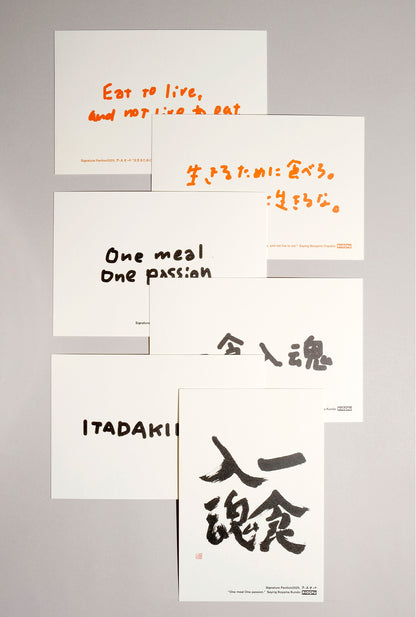 Eat to live,
and not live to eat
Signature Pavilion2025,
生きるために食べろ。
に生きるな。
and not live to eat." Saying Benjamin Franklin
One meal
One passion
Signature
食入魂
Kundo
ITADAKI
一食
入魂
Signature Pavilion2025, アースマート
"One meal One passion." Saying Koyama Kundo